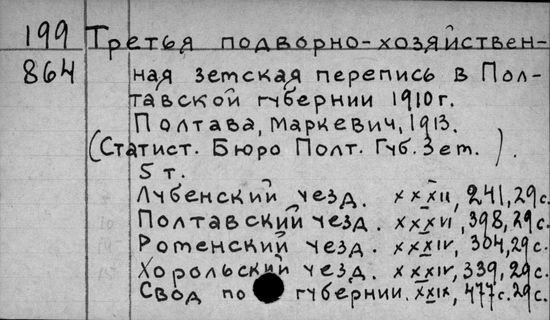 199
864
Третья подворно-хозяйствен-
ная земская перепись в Пол-
тавской губернии 1910 г.
Полтава, Маркевич, 1913.
(Статист. Бюро Полт. Губ. Зем. ).
5 т.
Лубенский уезд. XXXII, 241, 29 с.
Полтавский уезд. XXXVI, 398, 29 с.
Роменский уезд. XXXIV, 304, 29 с.
Хорольский уезд. XXXIV, 339, 29 с.
Свод по губернии. XXIX, 477 с. 29 с.